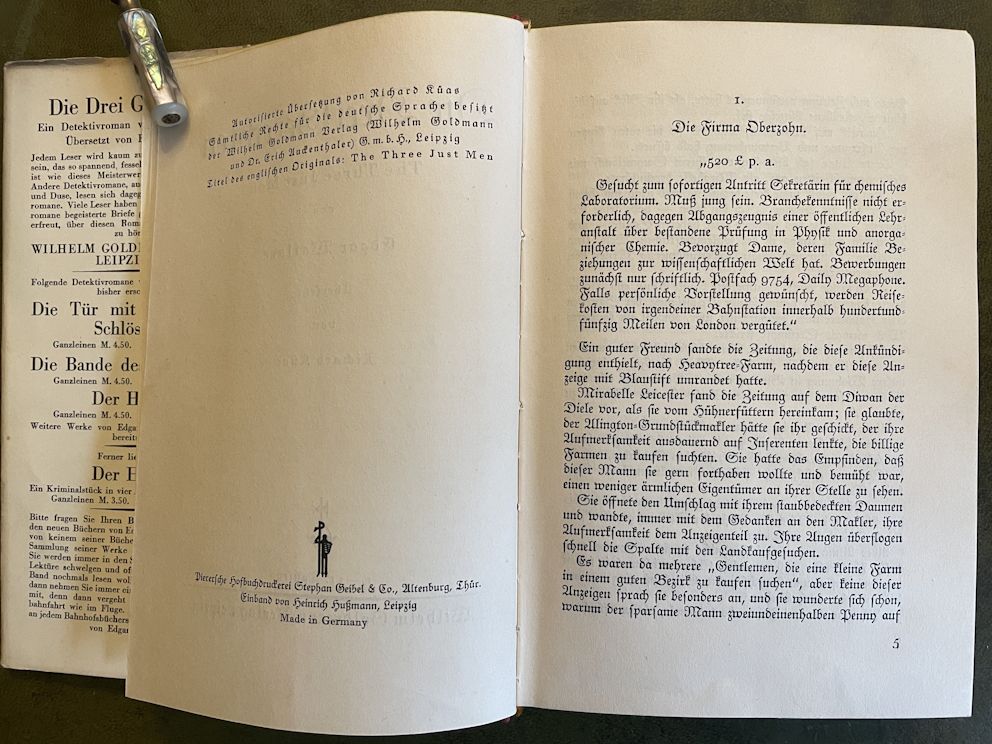 Die Drei G
Ein Detektivroman v
Übersetzt von
Jedem Leser wird kaum z
sein, das so spannend, fessel
ist wie dieses Meisterwer
Andere Detektivromane, au
und Duse, lesen sich dageg
romane. Viele Leser haben
romane begeisterte Briefe
erfreut, über diesen Rom
zu hör
WILHELM GOLD
LEIPZI
Folgende Detektivromane
bisher ersc
Die Tür mit
Schlös
Ganzleinen M. 4.50.
Die Bande de
Ganzleinen M. 4.50.
Der H
Ganzleinen M. 4.50.
Weitere Werke von Edga
bereit
Ferner lie
Der H
Ein Kriminalstück in vier
Ganzleinen M. 3.50.
Bitte fragen Sie Ihren B
den neuen Büchern von Ed
von keinem seiner Büche
Sammlung seiner Werke
Sie werden immer in den
Lektüre schwelgen und of
Band nochmals lesen wol
dann nehmen Sie immer ei
mit, denn dann vergeht
bahnfahrt wie im Fluge.
an jedem Bahnhofsbüchers
von Edgar
Autorisierte Übersetzung von Richard Küas
Sämtliche Rechte für die deutsche Sprache besitzt
der Wilhelm Goldmann Verlag (Wilhelm Goldmann
und Dr. Erich Auckenthaler) G. m. b. H., Leipzig
Titel des englischen Originals: The Three Just Men
Pierersche Hofbuchdruckerei Stephan Geibel & Co., Altenburg, Thür.
Einband von Heinrich Hußmann, Leipzig
Made in Germany
1.
Die Firma Oberzohn.
„520 £ p. a.
Gesucht zum sofortigen Antritt Sekretärin für chemisches
Laboratorium. Muß jung sein. Branchekenntnisse nicht er-
forderlich, dagegen Abgangszeugnis einer öffentlichen Lehr-
anstalt über bestandene Prüfung in Physik und anorga-
nischer Chemie. Bevorzugt Dame, deren Familie Be-
ziehungen zur wissenschaftlichen Welt hat. Bewerbungen
zunächst nur schriftlich. Postfach 9754, Daily Megaphone.
Falls persönliche Vorstellung gewünscht, werden Reise-
kosten von irgendeiner Bahnstation innerhalb hundertund-
fünfzig Meilen von London vergütet.“
Ein guter Freund sandte die Zeitung, die diese Ankündi-
gung enthielt, nach Heavytree-Farm, nachdem er diese An-
zeige mit Blaustift umrandet hatte.
Mirabelle Leicester fand die Zeitung auf dem Diwan der
Diele vor, als sie vom Hühnerfüttern hereinkam; sie glaubte,
der Alington-Grundstückmakler hätte sie ihr geschickt, der ihre
Aufmerksamkeit ausdauernd auf Inserenten lenkte, die billige
Farmen zu kaufen suchten. Sie hatte das Empfinden, daß
dieser Mann sie gern forthaben wollte und bemüht war,
einen weniger ärmlichen Eigentümer an ihrer Stelle zu sehen.
Sie öffnete den Umschlag mit ihrem staubbedeckten Daumen
und wandte, immer mit dem Gedanken an den Makler, ihre
Aufmerksamkeit dem Anzeigenteil zu. Ihre Augen überflogen
schnell die Spalte mit den Landkaufgesuchen.
Es waren da mehrere „Gentlemen, die eine kleine Farm
in einem guten Bezirk zu kaufen suchen“, aber keine dieser
Anzeigen sprach sie besonders an, und sie wunderte sich schon,
warum der sparsame Mann zweiundeinenhalben Penny auf
5